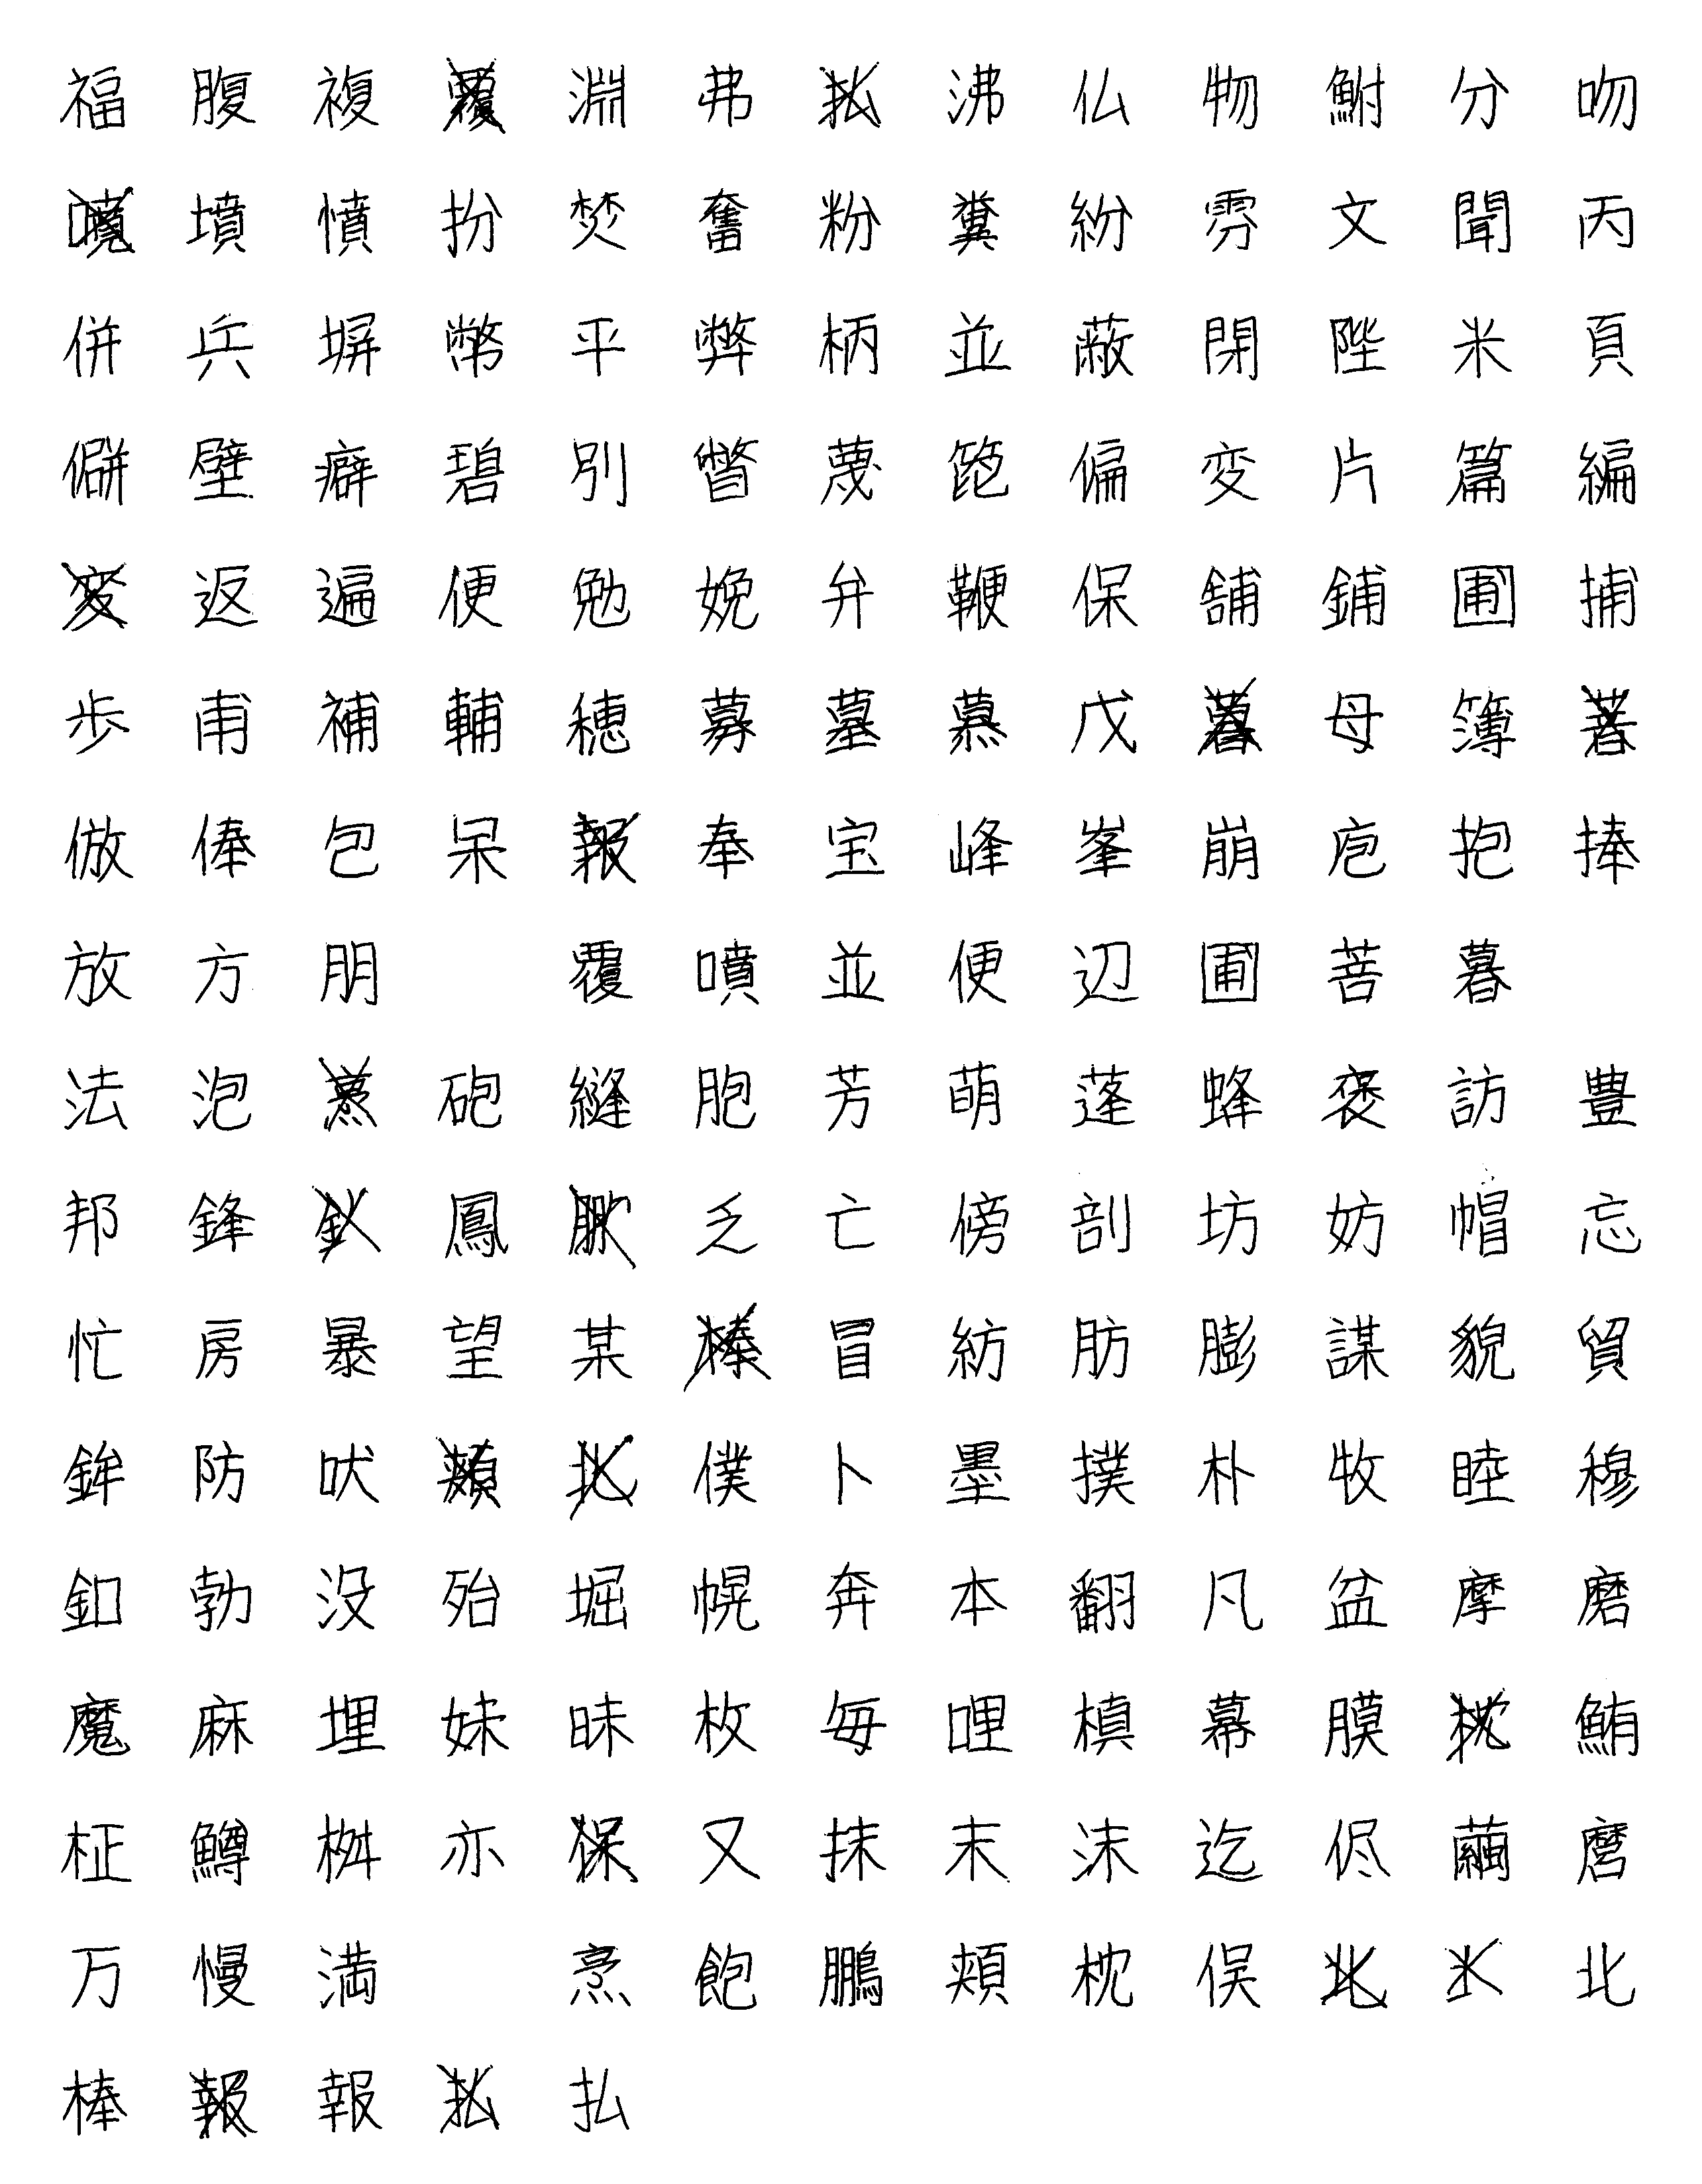 福腹複淵弗沸仏物鮒分吻
墳憤扮焚奮粉糞紛雰文聞丙
併兵塀幣平弊柄並蔽閉陛米頁
僻壁癖碧別瞥蔑箆偏変片篇編
返遍便勉娩弁鞭保舗鋪圃捕
歩甫補輔穂募墓慕戊母簿
倣俸包呆奉宝峰峯崩庖抱捧
放方朋 覆噴並便辺圃菩暮
法泡砲縫胞芳萌蓬蜂褒訪豊
邦鋒鳳乏亡傍剖坊妨帽忘
忙房暴望某冒紡肪膨謀貌貿
鉾防吠僕卜墨撲朴牧睦穆
釦勃没殆堀幌奔本翻凡盆摩磨
魔麻埋妹昧枚毎哩槙幕膜鮪
柾鱒桝亦又抹末沫迄侭繭麿
万慢満 烹飽鵬頬枕俣北
棒報払